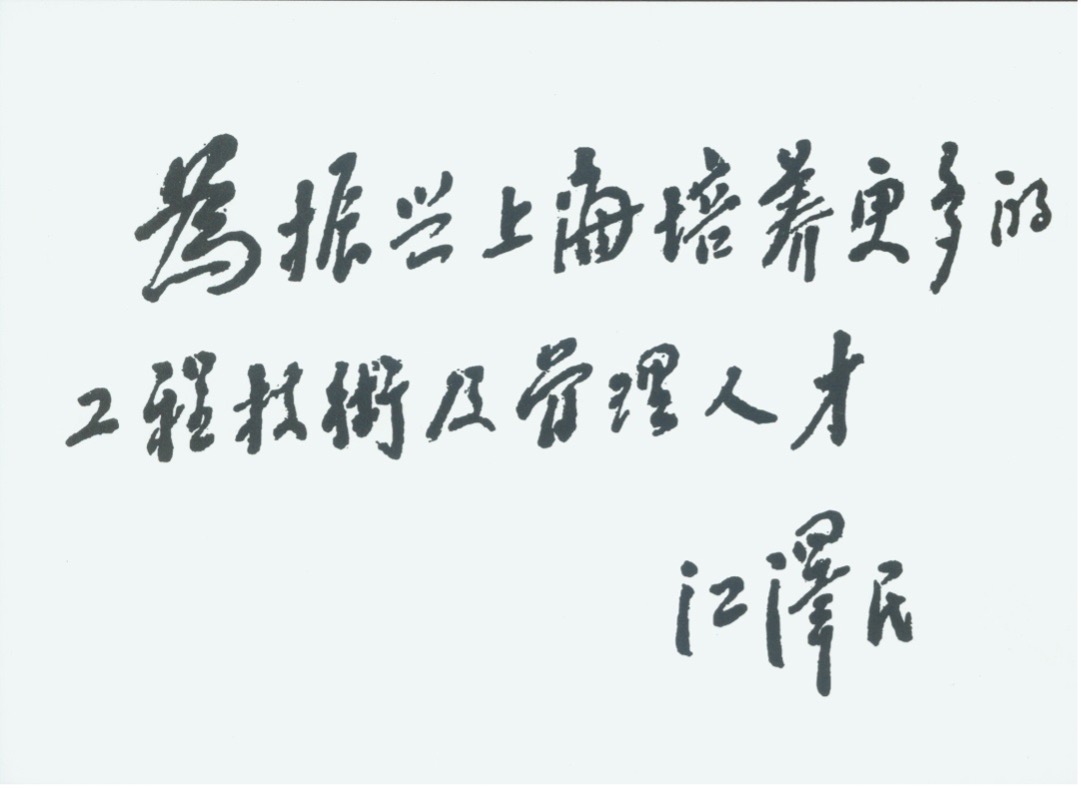 為振兴上海培养更多的
工程技術及管理人才
江澤民